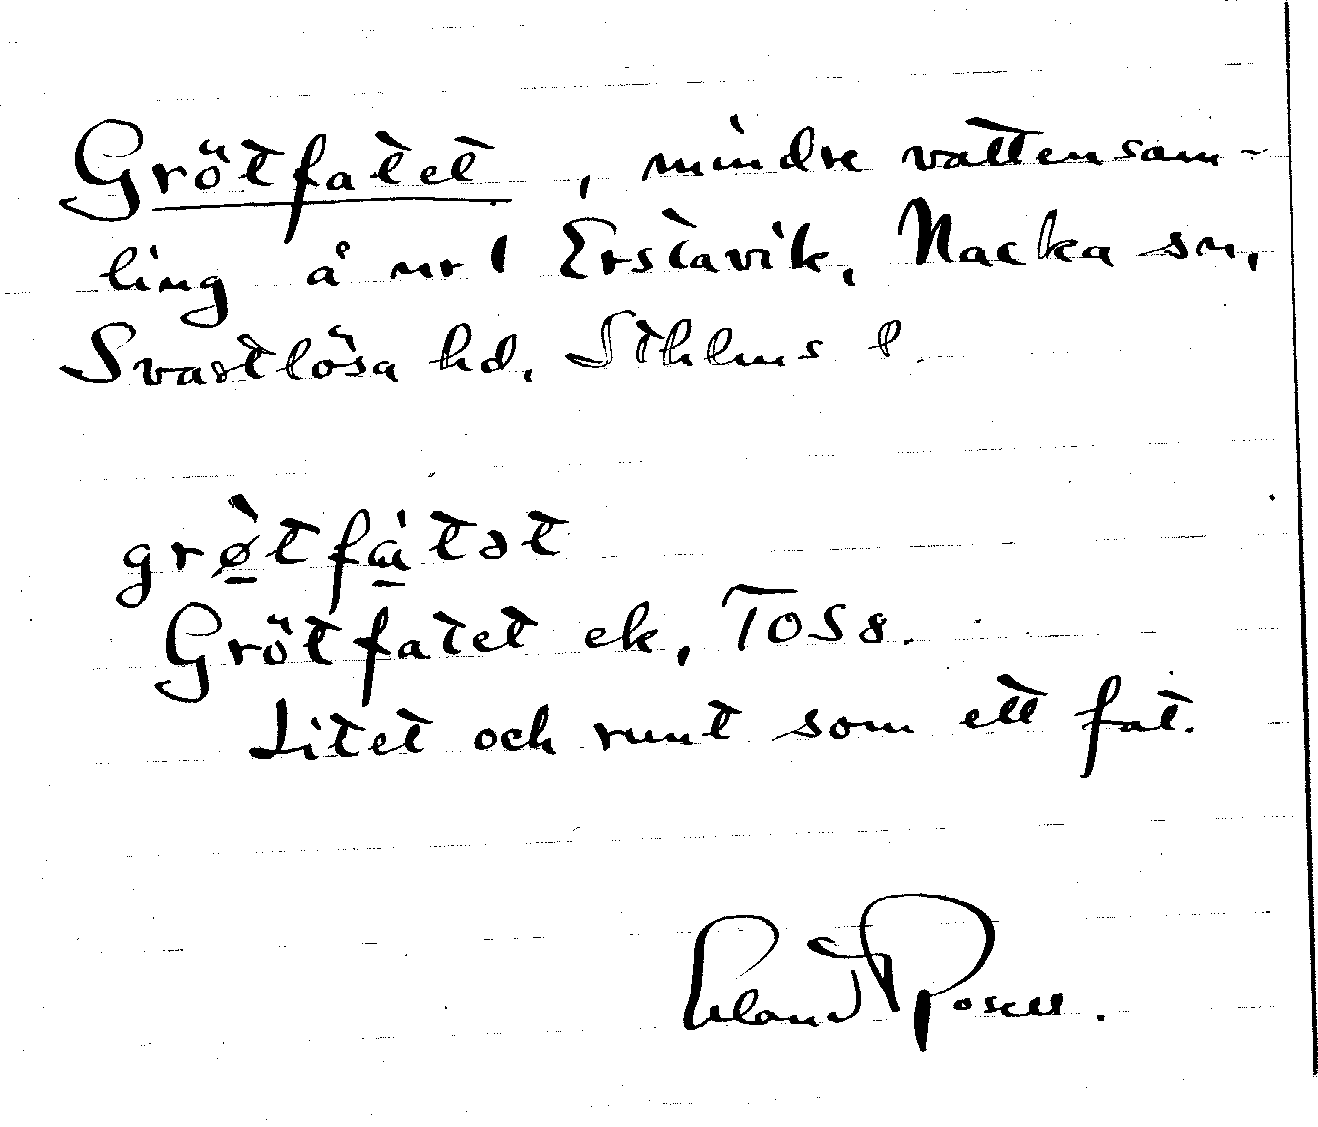 Grötfatet, mindre vattensam-
ling å nr 1 Erstavik, Nacka sn,
Svartlösa hd, Sthlms l.
grø̀tfàtət
Grötfatet ek, TOS 8.
Litet och runt som ett fat.
Erland Rosell.